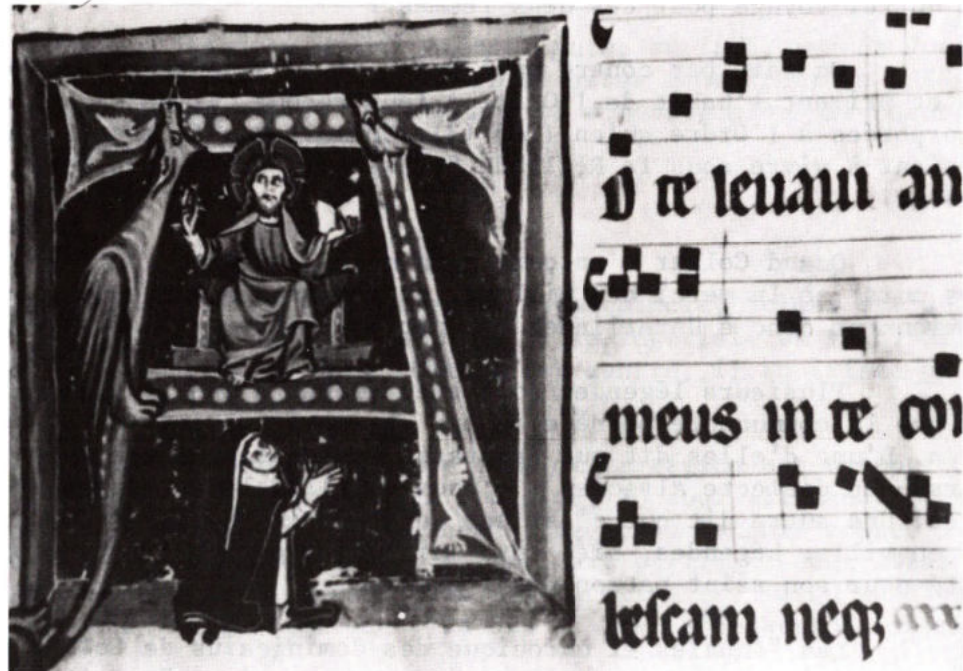 D te leuaui an
meus in te con
bescam neq;